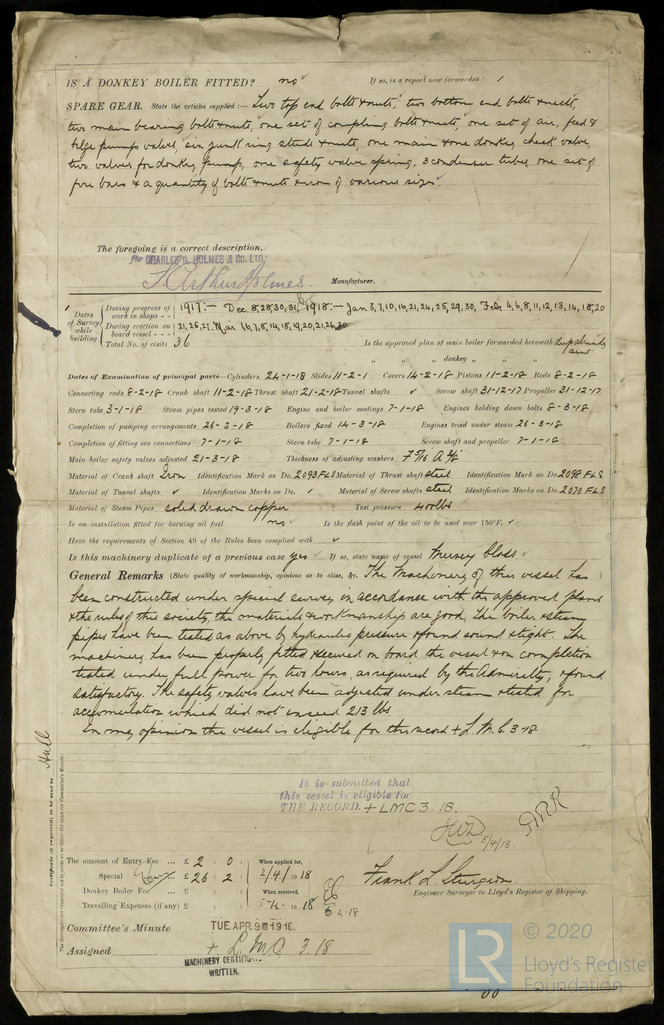 IS A DONKEY BOILER FITTED? no If so, is a report now forwarded? ✓
SPARE GEAR. State the articles supplied:— Two top end bolts & nuts, two bottom end bolts & nuts,
two main bearing bolts & nuts, one set of coupling bolts & nuts, one set of air, feed &
bilge pump valves, six junk ring studs & nuts, one main & one donkey check valve,
two valves for donkey pump, one safety valve spring, 3 condenser tubes, one set of
fire bars & a quantity of bolts & nuts & iron of various sizes.
The foregoing is a correct description,
for CHARLES D. HOLMES & CO. LTD.
Arthur Holmes. Manufacturer.
Dates of Survey while building
During progress of work in shops - - 1917:— Dec. 8, 28, 30, 31, 1918.— Jan 3, 7, 10, 16, 21, 24, 25, 29, 30, Feb. 4, 6, 8, 11, 12, 13, 14, 18, 20
During erection on board vessel - - - 21, 26, 27. Mar 1, 6, 7, 8, 14, 18, 19, 20, 21, 26, 30
Total No. of visits 36 Is the approved plan of main boiler forwarded herewith Dup already sent
" " donkey " " "
Dates of Examination of principal parts—Cylinders 24-1-18 Slides 11-2-1 Covers 14-2-18 Pistons 11-2-18 Rods 8-2-18
Connecting rods 8-2-18 Crank shaft 11-2-18 Thrust shaft 21-2-18 Tunnel shafts ✓ Screw shaft 31-12-17 Propeller 31-12-17
Stern tube 3-1-18 Steam pipes tested 19-3-18 Engine and boiler seatings 7-1-18 Engines holding down bolts 8-3-18
Completion of pumping arrangements 26-3-18 Boilers fixed 14-3-18 Engines tried under steam 26-3-18
Completion of fitting sea connections 7-1-18 Stern tube 7-1-18 Screw shaft and propeller 7-1-18
Main boiler safety valves adjusted 21-3-18 Thickness of adjusting washers
Material of Crank shaft Iron Identification Mark on Do. 2093 FLS Material of Thrust shaft steel Identification Mark on Do. 2098 FLS
Material of Tunnel shafts ✓ Identification Marks on Do. ✓ Material of Screw shafts steel Identification Marks on Do. 2070 FLS
Material of Steam Pipes solid drawn copper Test pressure 400 lbs
Is an installation fitted for burning oil fuel no ✓ Is the flash point of the oil to be used over 150°F. ✓
Have the requirements of Section 49 of the Rules been complied with ✓
Is this machinery duplicate of a previous case yes If so, state name of vessel Mersey Class
General Remarks (State quality of workmanship, opinions as to class, &c. The Machinery of this vessel has
been constructed under special survey in accordance with the approved plans
& the rules of this society, the materials & workmanship are good, the boiler & steam
pipes have been tested as above by hydraulic pressure & found sound & tight. The
machinery has been properly fitted & secured on board the vessel & on completion
tested under full power for two hours, as required by the Admiralty, & found
satisfactory. The safety valves have been adjusted under steam & tested for
accumulation which did not exceed 213 lbs.
In my opinion the vessel is eligible for the record + L.M.C. 3-18
It is submitted that
this vessel is eligible for
THE RECORD. + LMC 3.18.
5/4/18.
Certificate (if required) to be sent to Hull
The amount of Entry Fee ... £ 2 : 0 : When applied for,
Special ... £ 26 : 2 : 2/4/1918
Donkey Boiler Fee ... £ : : When received,
Travelling Expenses (if any) £ : : 5-4-1918
Frank L. Sturgeon
Engineer Surveyor to Lloyd's Register of Shipping.
Committee's Minute TUE. APR. 9 1918.
Assigned + L.M.C. 3.18
MACHINERY CERTIFICATE
WRITTEN.
LR
© 2020
Lloyd's Register
Foundation